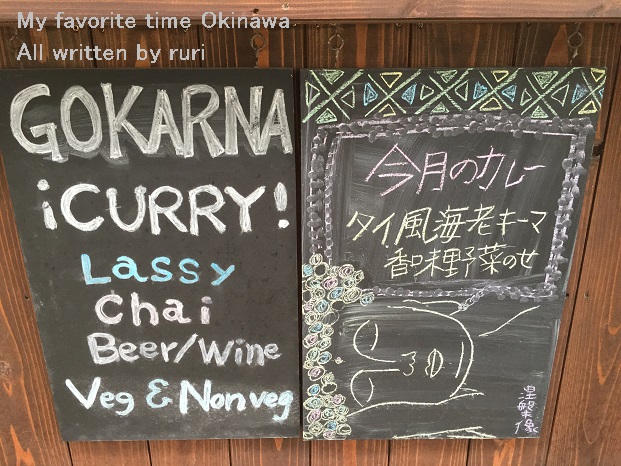 My favorite time Okinawa
All written by ruri
GOKARNA
¡CURRY!
Lassy
Chai
Beer/Wine
Veg & Nonveg
今月のカレー
タイ風海老キーマ
香味野菜のせ
涅槃像